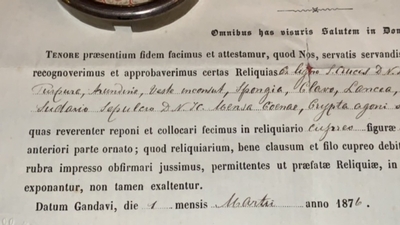 Omnibus has visuris Salutem in Do
TENORE præsentium fidem facimus et attestamur, quod Nos, servatis servandi
recognoverimus et approbaverimus certas Reliquias ligno S. Crucis D. N.
Purpura, Arundine, Veste inconsut, Spongia, Clavo, Lancea,
Sudario Sepulcro D. N. J C. Mensa Coenae, Crypta agoni
quas reverenter reponi et collocari fecimus in reliquiario cupreo figuræ
anteriori parte ornato; quod reliquiarium, bene clausum et filo cupreo debit
rubra impresso obfirmari jussimus, permittentes ut præfatæ Reliquiæ, in
exponantur, non tamen exaltentur.
Datum Gandavi, die 1 mensis Martii anno 1876.